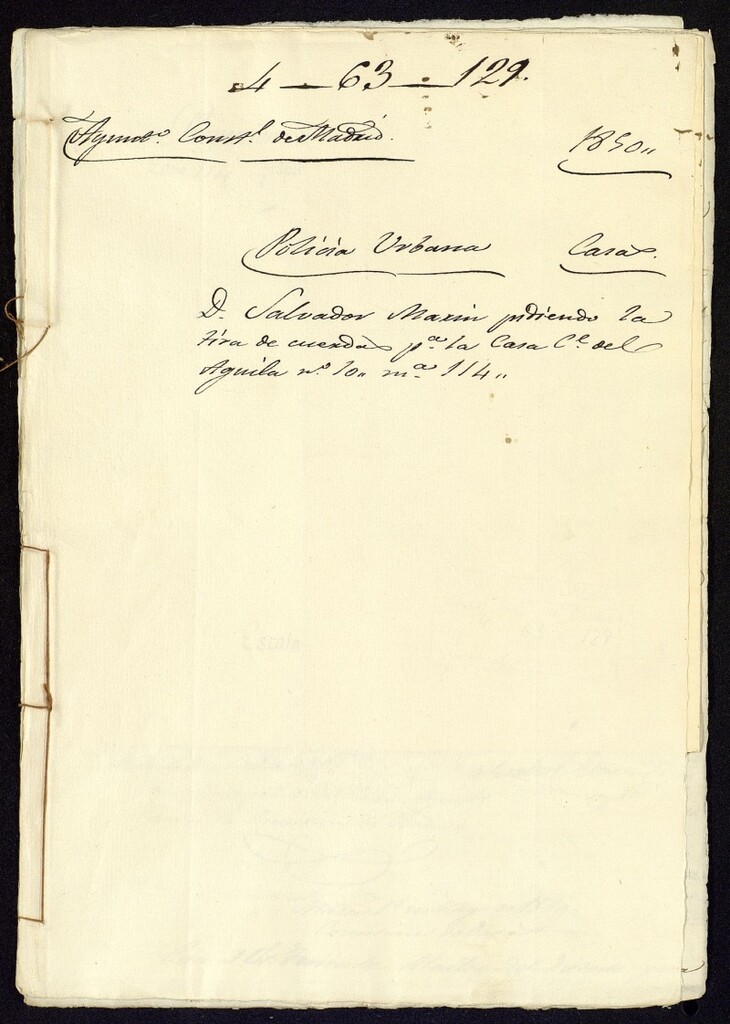 4 — 63 — 129.
Ayuntº. Constl. de Madrid.
1850„
Policia Urbana
Casas.
D. Salvador Marin pidiendo la
tira de cuerdas pª. la Casa Cª. del
Aguila nº. 10„ mª. 114„
Escala